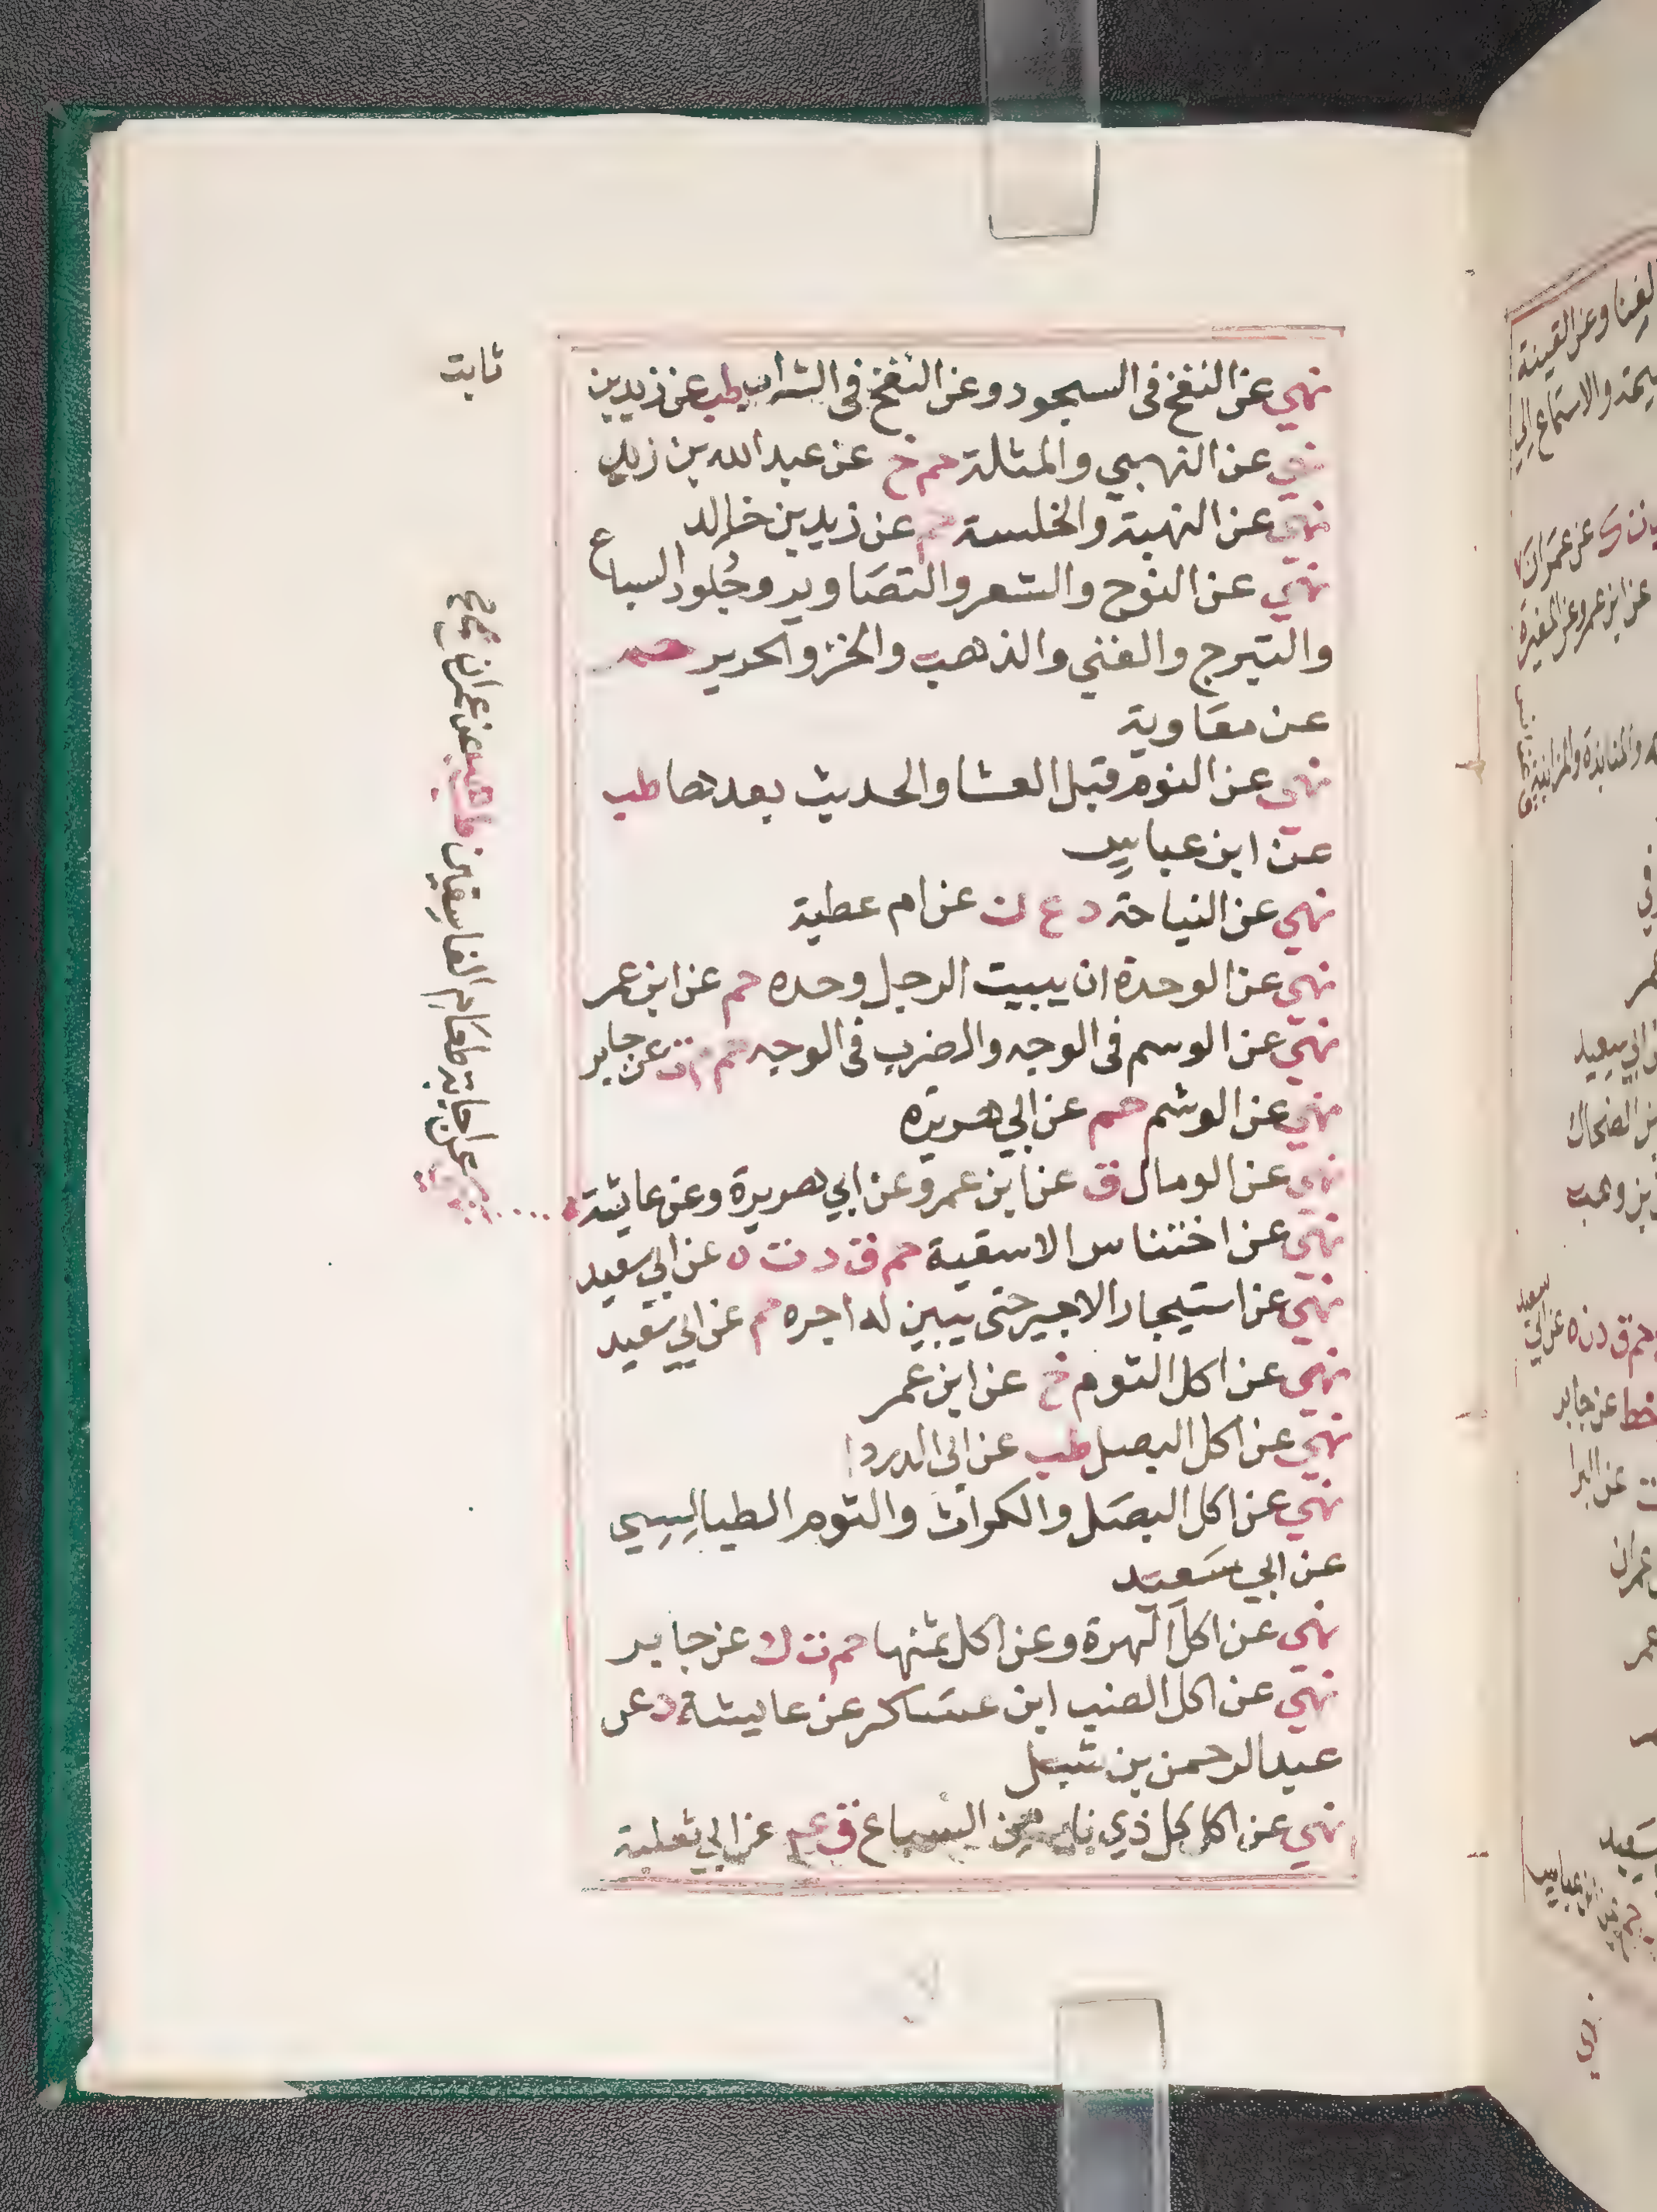 نهي عن النفخ في السجود وعن النفخ في الشراب طب عن زيد بن
ثابت
نهي عن النهبي والمثلة حم خ عن عبد الله بن زيد
نهي عن النهبة والخلسة حم عن زيد بن خالد
نهي عن النوح والشعر والتصاوير وجلود السباع
والتبرج والغني والذهب والخز والحرير حم
عن معاوية
نهي عن النوم قبل العشا والحديث بعدها طب
عن ابن عباس
نهي عن النياحة د ع ن عن ام عطية
نهي عن الوحدة ان يبيت الرجل وحده حم عن ابن عمر
نهي عن الوسم في الوجه والضرب في الوجه حم م ت عن جابر
نهي عن الوشم حم عن ابي هريرة
نهي عن الوصال ق عن ابن عمر وعن ابي هريرة وعن عايشة
نهي عن اجابة طعام الفاسقين طب عن عمران
نهي عن اختناس الاسقية حم ق د ت ه عن ابي سعيد
نهي عن استيجار الاجير حتى يبين له اجره حم عن ابي سعيد
نهي عن اكل الثوم خ عن ابن عمر
نهي عن اكل البصل طب عن ابي الدردا
نهي عن اكل البصل والكراث والثوم الطيالسي
عن ابي سعيد
نهي عن اكل الهرة وعن اكل ثمنها حم ت ك عن جابر
نهي عن اكل الضب ابن عساكر عن عايشة د عن
عبد الرحمن بن شبل
نهي عن اكل كل ذي ناب من السباع ق ع عن ابي ثعلبة